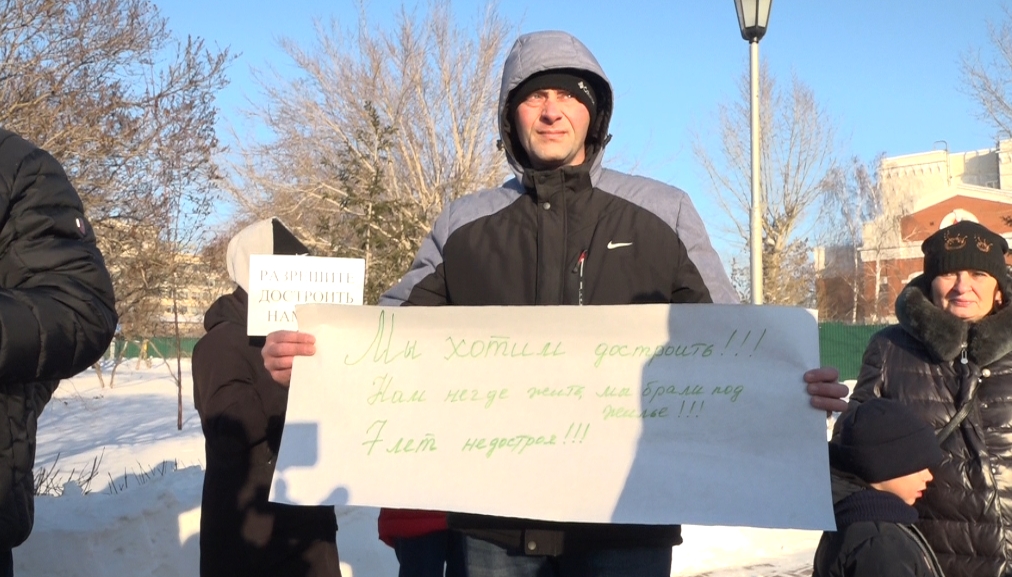 РАЗРЕШИТЕ
ДОСТРОИТЬ
НАМ
Мы хотим достроить!!!
Нам негде жить, мы брали под
жилье!!!
7 лет недостроя!!!